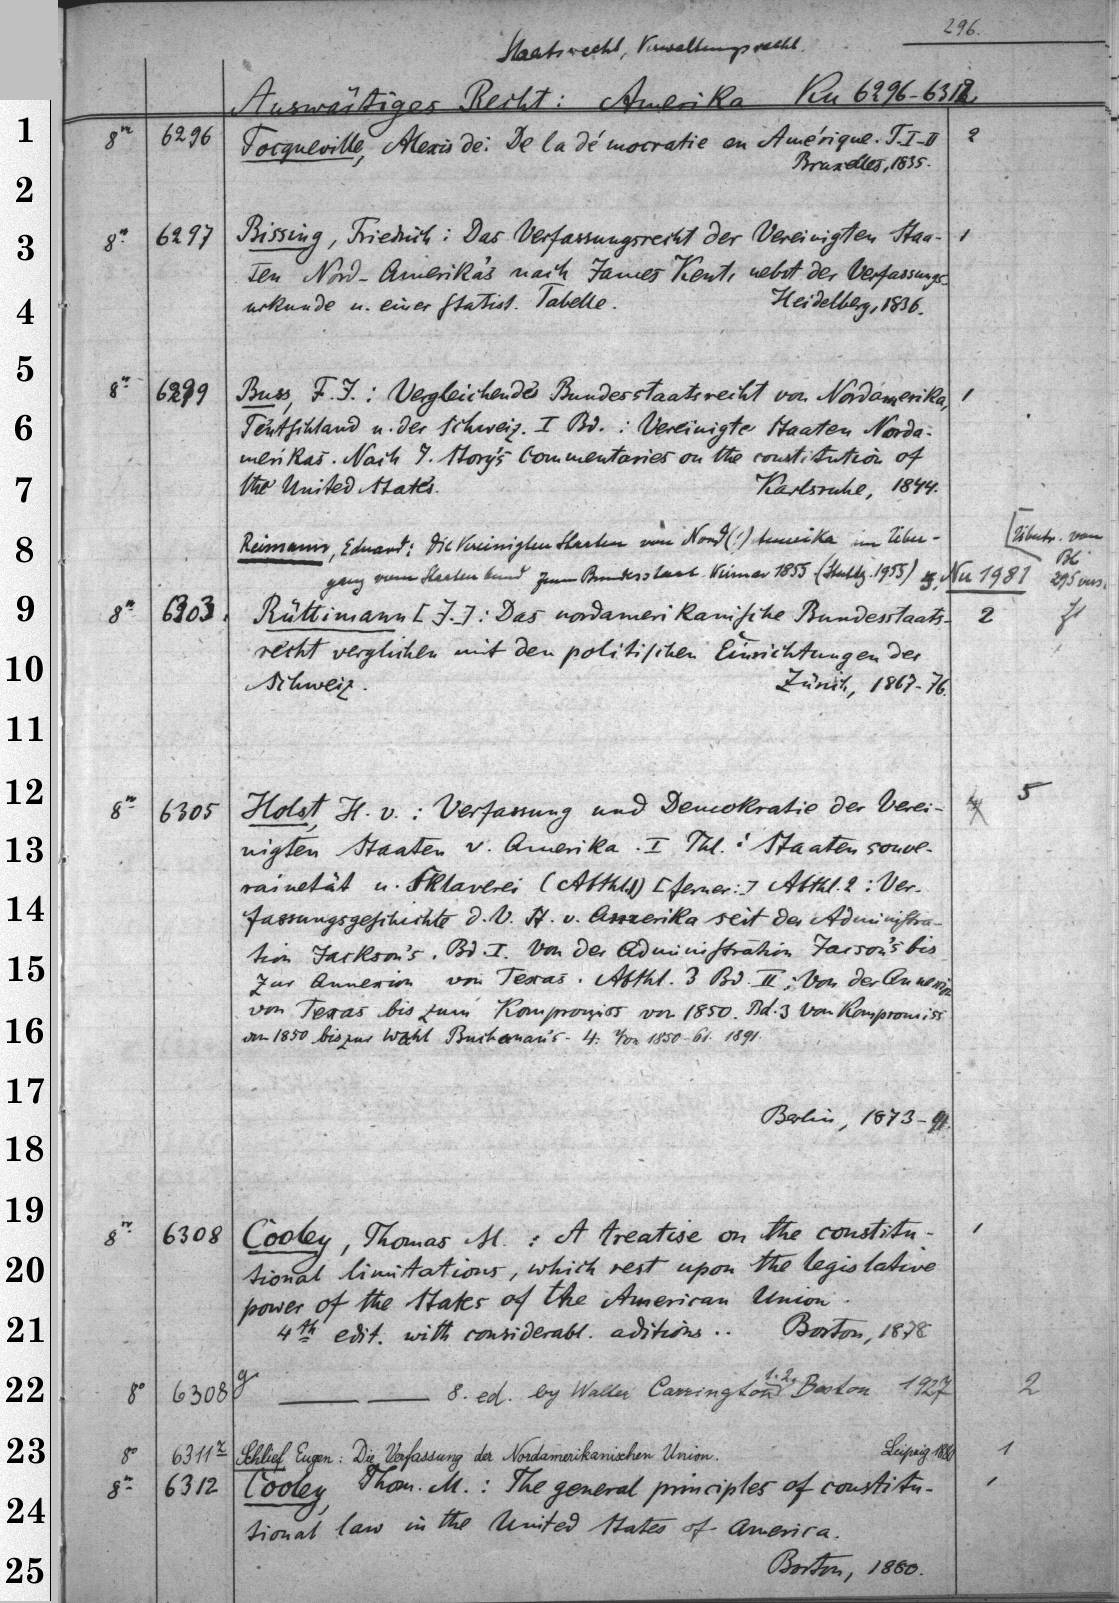 296.
Staatsrecht, Verwaltungsrecht.
Auswärtiges Recht: Amerika Ku 6296-6312
1
8º 6296 Tocqueville, Alexis de: De la démocratie en Amérique. T. I-II 2
Bruxelles, 1835.
2
3
8º 6297 Bissing, Friedrich: Das Verfassungsrecht der Vereinigten Staa- 1
ten Nord-Amerika's nach James Kent, nebst der Verfassungs-
4
urkunde u. einer statist. Tabelle. Heidelberg, 1836.
5
8º 6299 Buss, F. J.: Vergleichendes Bundesstaatsrecht von Nordamerika, 1
6
Teutschland u. der Schweiz. I Bd.: Vereinigte Staaten Norda-
merikas. Nach J. Story's Commentaries on the constitution of
7
the United States. Karlsruhe, 1844.
8
Reimann, Eduard: Die Vereinigten Staaten von Nord(!)amerika im Ueber- [Übertr. vom
gang vom Staatenbund zum Bundesstaat. Weimar 1855 (Stuttg. 1955) s. Nu 1981 Bl. 295 vers.
9
8º 6303. Rüttimann [J.]: Das nordamerikanische Bundesstaats- 2
10
recht verglichen mit den politischen Einrichtungen der
Schweiz. Zürich, 1867-76.
11
12
8º 6305 Holst, H. v.: Verfassung und Demokratie der Verei- 5
13
nigten Staaten v. Amerika. I Thl.: Staatensouve-
rainetät u. Sklaverei (Abthl.1) [ferner:] Abthl. 2: Ver-
14
fassungsgeschichte d. V. St. v. Amerika seit der Administra-
tion Jackson's. Bd. I. Von der Administration Jacson's bis
15
zur Annexion von Texas. Abthl. 3 Bd. II: Von der Annexion
von Texas bis zum Kompromiss von 1850. Bd. 3 Von Kompromiss
16
von 1850 bis zur Wahl Buchanan's. 4: Von 1850-61. 1891.
17
Berlin, 1873-91.
18
19
8º 6308 Cooley, Thomas M.: A treatise on the constitu- 1
20
tional limitations, which rest upon the legislative
power of the States of the American Union.
21
4th edit. with considerabl. aditions.. Boston, 1878
22
8º 6308g — — 8. ed. by Walter Carrington 1.2. Boston 1927 2
23
8º 6311z Schlief Eugen: Die Verfassung der Nordamerikanischen Union. Leipzig 1880 1
8º 6312 Cooley, Thom. M.: The general principles of constitu- 1
24
tional law in the United States of America.
25
Boston, 1880.